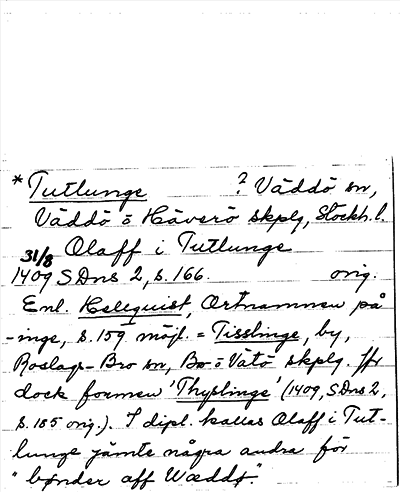 * Tutlunge ? Väddö sn,
Väddö o Häverö skplg, Stockh. l.
31/8 Olaff i Tutlunge
1409 SDns 2, s. 166. orig.
Enl. Hellquist, Ortnammen på
-inge, s. 159 möjl. = Tisslinge, by,
Roslags-Bro sn, Bro o Vätö skplg. Jfr
dock formen 'Thyslinge' (1409, SDns 2,
s. 185 orig.). I dipl. kallas Olaff i Tut-
lunge jämte några andra för
"bønder aff Wæddø".